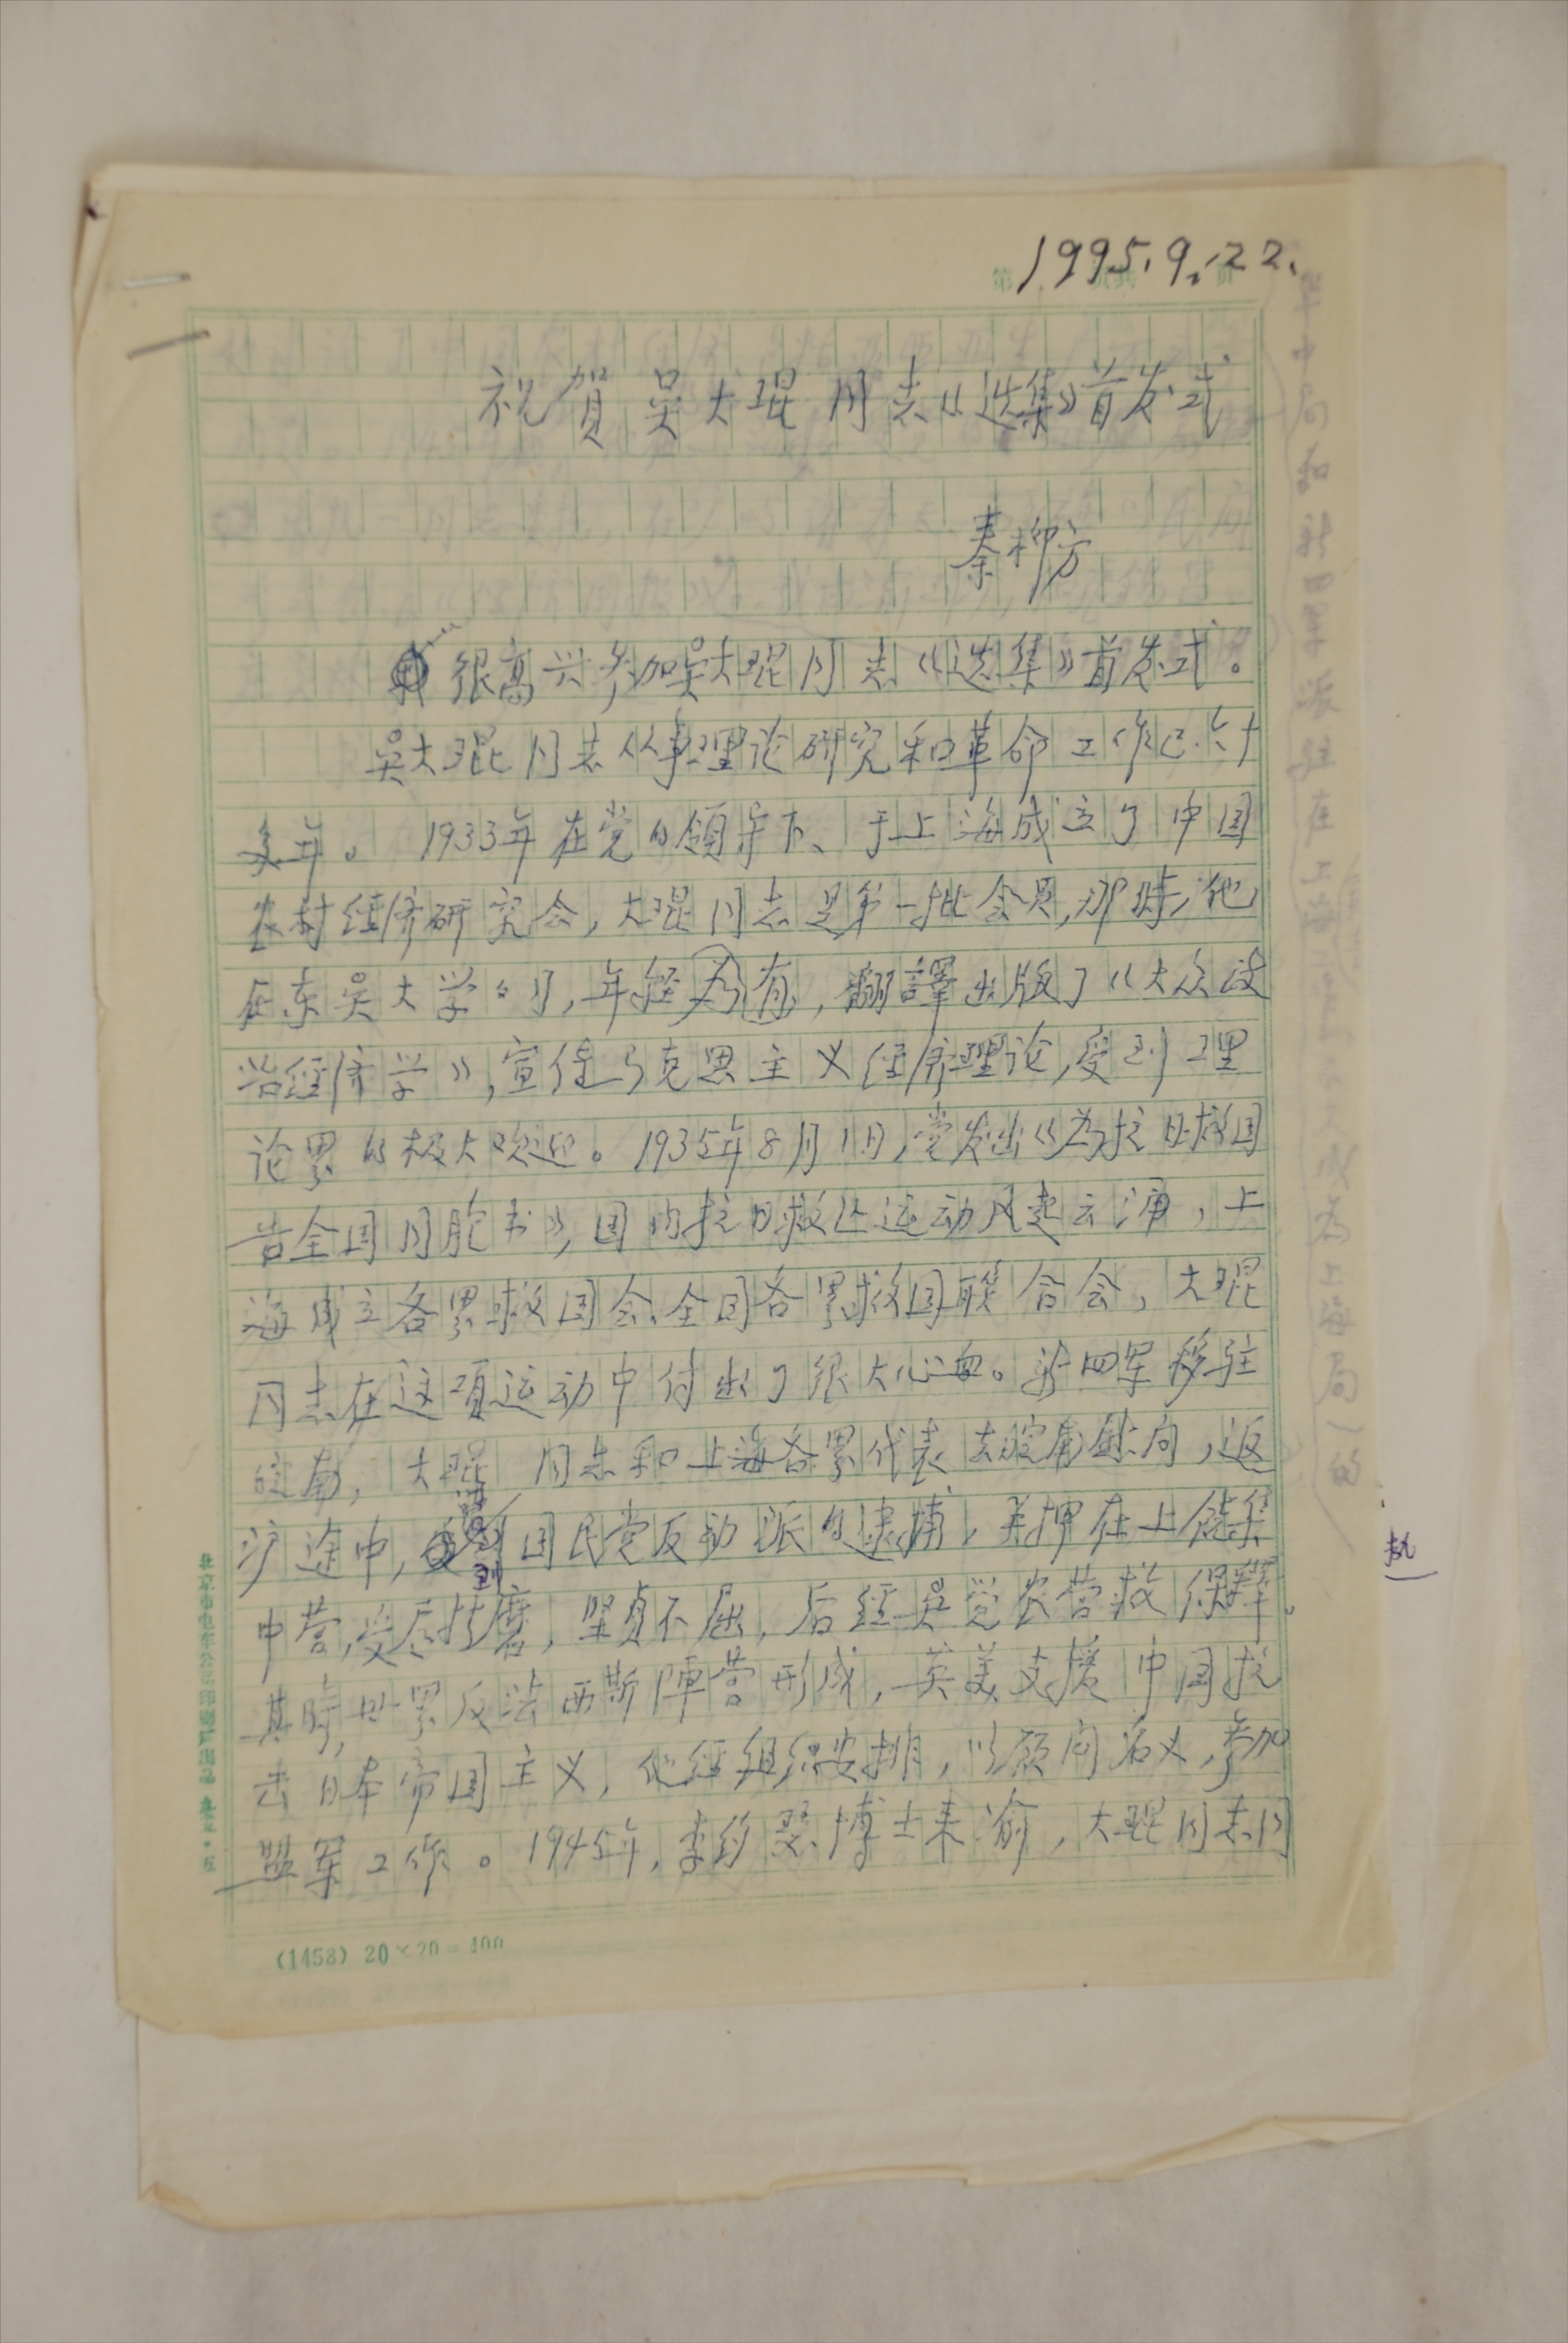 1995.9.22.
祝贺吴大琨同志《选集》首发式
秦柳方
很高兴参加吴大琨同志《选集》首发式。
吴大琨同志从事理论研究和革命工作已六十
多年。1933年在党的领导下、于上海成立了中国
农村经济研究会,大琨同志是第一批会员,那时,他
在东吴大学学习,年轻有为,翻譯出版了《大众政
治经济学》,宣传马克思主义经济理论,受到理
论界的极大欢迎。1935年8月1日,党发出《为抗日救国
告全国同胞书》,国内抗日救亡运动风起云涌,上
海成立各界救国会、全国各界救国联合会,大琨
同志在这项运动中付出了很大心血。新四军移驻
皖南,大琨同志和上海各界代表去皖南慰问,返
沪途中,遭到国民党反动派的逮捕,关押在上饶集
中营,受尽折磨,坚贞不屈,后经吴觉农营救保釋。
其時,世界反法西斯陣营形成,英美支援中国抗
击日本帝国主义,他经组织安排,以顾问名义,参加
盟军工作。1945年,李约瑟博士来渝,大琨同志同
(1458) 20×20=400